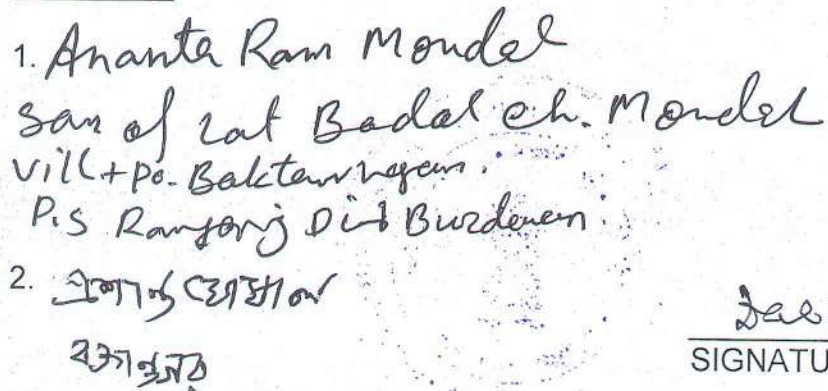 1. Ananta Ram Mondal
Son of Lat Badal ch. Mondal
Vill + Po. Baktarnagar.
P.S Dist Burdwan.
2. প্রশান্ত ঘোষাল
SIGNATU